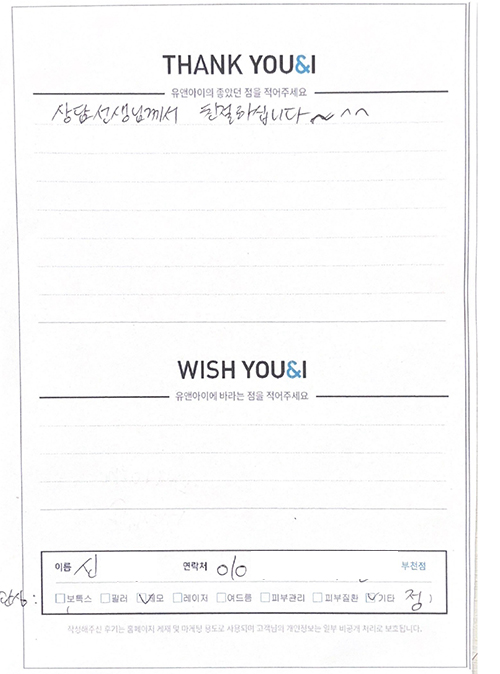 THANK YOU&I
유앤아이의 좋았던 점을 적어주세요
상담선생님께서 친절하십니다~ ^^
WISH YOU&I
유앤아이에 바라는 점을 적어주세요
이름 신 연락처 010 부천점
보톡스 필러 제모 레이저 여드름 피부관리 피부질환 기타 점 )
작성해주신 후기는 홈페이지 게재 및 마케팅 용도로 사용되며 고객님의 개인정보는 일부 비공개 처리로 보호됩니다.